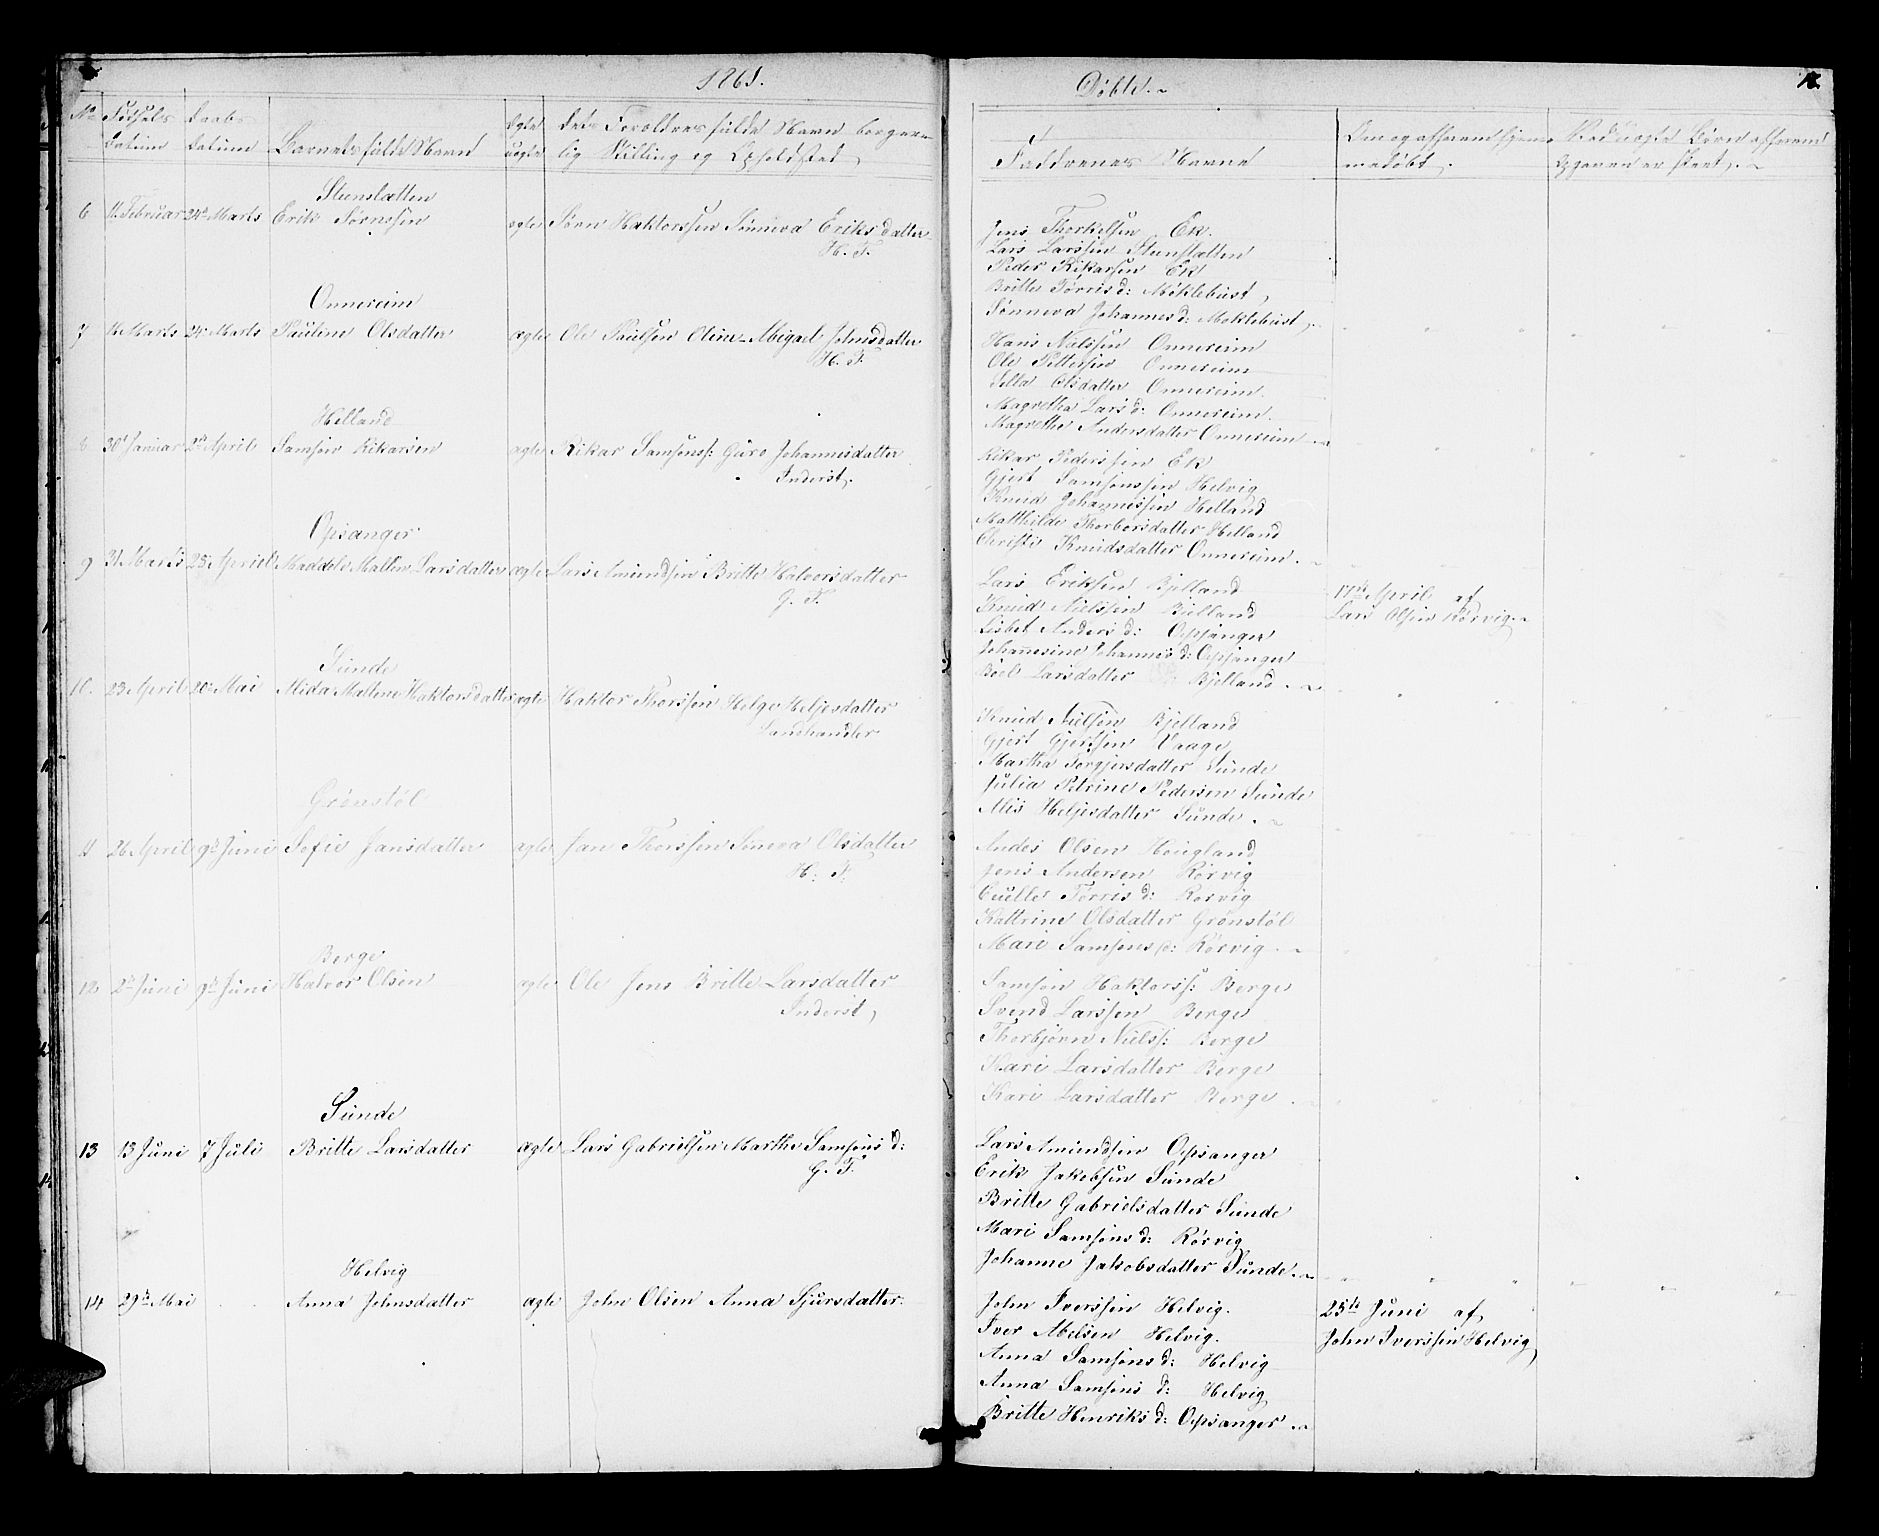 1861.
Døbte.
No Fødsels Daabs Barnets fulde Navn ægte Forældres fulde Navn borger-
Datum datum uægte lig Stilling og Opholdsted
Faddrenes Navne
Om og af hvem hjemmedøbt.
Steensletten
6 11 Februar 24de Marts Erik Sørnssen ægte Sørn Haktorssen Sønneva Eriksdatter
H. F.
Jens Thorkelsen Ek.
Lars Larssen Steensletten
Peder Rikarsen Ek
Britte Tørrisd: Møklebust,
Sønneva Johannesd: Moklebust,
Onnereim
7 11 Marts 24 Marts Pauline Olsdatter ægte Ole Paulsen Oline Abigael Johnsdatter
H. F.
Hans Nielssen Onnereim
Ole Pettersen Onnereim
Olsdatter Onnereim.
Magretha Larsd: Onnereim.
Magrethe Andersdatter Onnereim
Helland
8 30t Januar 2de April Samson Rikarsen ægte Rikar Samsons: Guro Johannesdatter
Inderst,
Rikar Pederssen Ek
Gjert Samsonssen Helvig
Knud Johannessen Helland
Matthilde Thorborsdatter Helland
Christi Knudsdatter Onnereim.
Opsanger
9 31 Marts 25 Apriel Maddele Malten Larsdatter ægte Lars Amundsen Britte Halvorsdatter
G. F.
Lars Eriksen Bjelland
Knud Nielssen Bjelland
Lisbet Andersd: Opsanger
Johannesine Johannesd: Opsanger
Boel Larsdatter Bjelland.
17de April af
Lars Olsen Rørvig.
Sunde
10. 23 April 20 Mai Alida Maltene Haktorsdatter ægte Haktor Thorssen Helge Heljesdatter
Landhandler
Knud Nielsen Bjelland
Gjert Gjertsen Vaage
Martha Torgjersdatter Sunde
Julia Petrine Pedersen Sunde
Alis Heljesdatter Sunde.
Grønstøl
11 26 April 9de Juni Sofie Jansdatter ægte Jan Thorssen Søneva Olsdatter
H. F.
Andes Olsen Hougland
Jens Andersen Rørvig
Tørrisd: Rørvig
Kattrine Olsdatter Grønstøl
Mari Samsonsd: Rørvig.
Berge
12 2de Juni 9de Juni Halvor Olsen ægte Ole Jens Britte Larsdatter
Inderst,
Samson Haktorss: Berge
Svend Larssen Berge
Thorbjørn Nielss: Berge
Kari Larsdatter Berge
Kari Larsdatter Berge.
Sunde
13 13 Juni 7 Juli Britte Larsdatter ægte Lars Gabrielsen Martha Samsonsd:
G. F.
Lars Amundsen Opsanger
Erik Jakobsen Sunde
Britte Gabrielsdatter Sunde
Mari Samsonsd: Rørvig
Johanne Jakobsdatter Sunde.
Helvig
14 29de Mai Anna Johnsdatter ægte John Olsen Anna Sjursdatter.
John Iverssen Helvig.
Iver Abelsen Helvig.
Anna Samsonsd: Helvig
Anna Samsonsd: Helvig
Britte Henriksd: Opsanger.
25de Juni af
John Iverssen Helvig